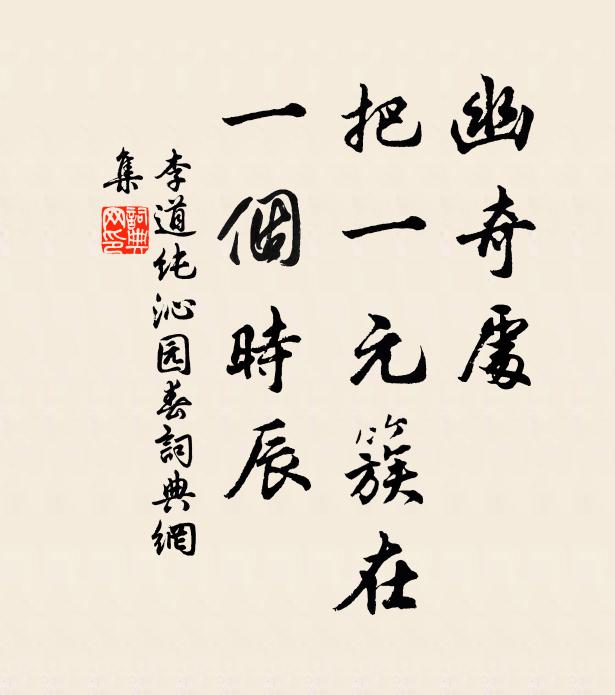 幽奇處
把一元簇在
一個時辰
李道纯沁园春詞典網
集
詞典
网印